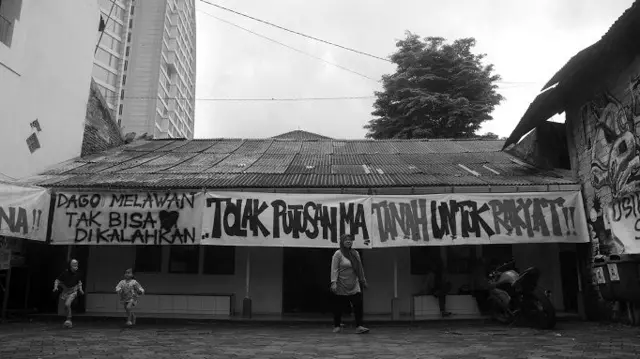 NA !!
DAGO MELAWAN
TAK BISA
DIKALAHKAN
TOLAK PUTUSAN MA
TANAH UNTUK RAKYAT!!